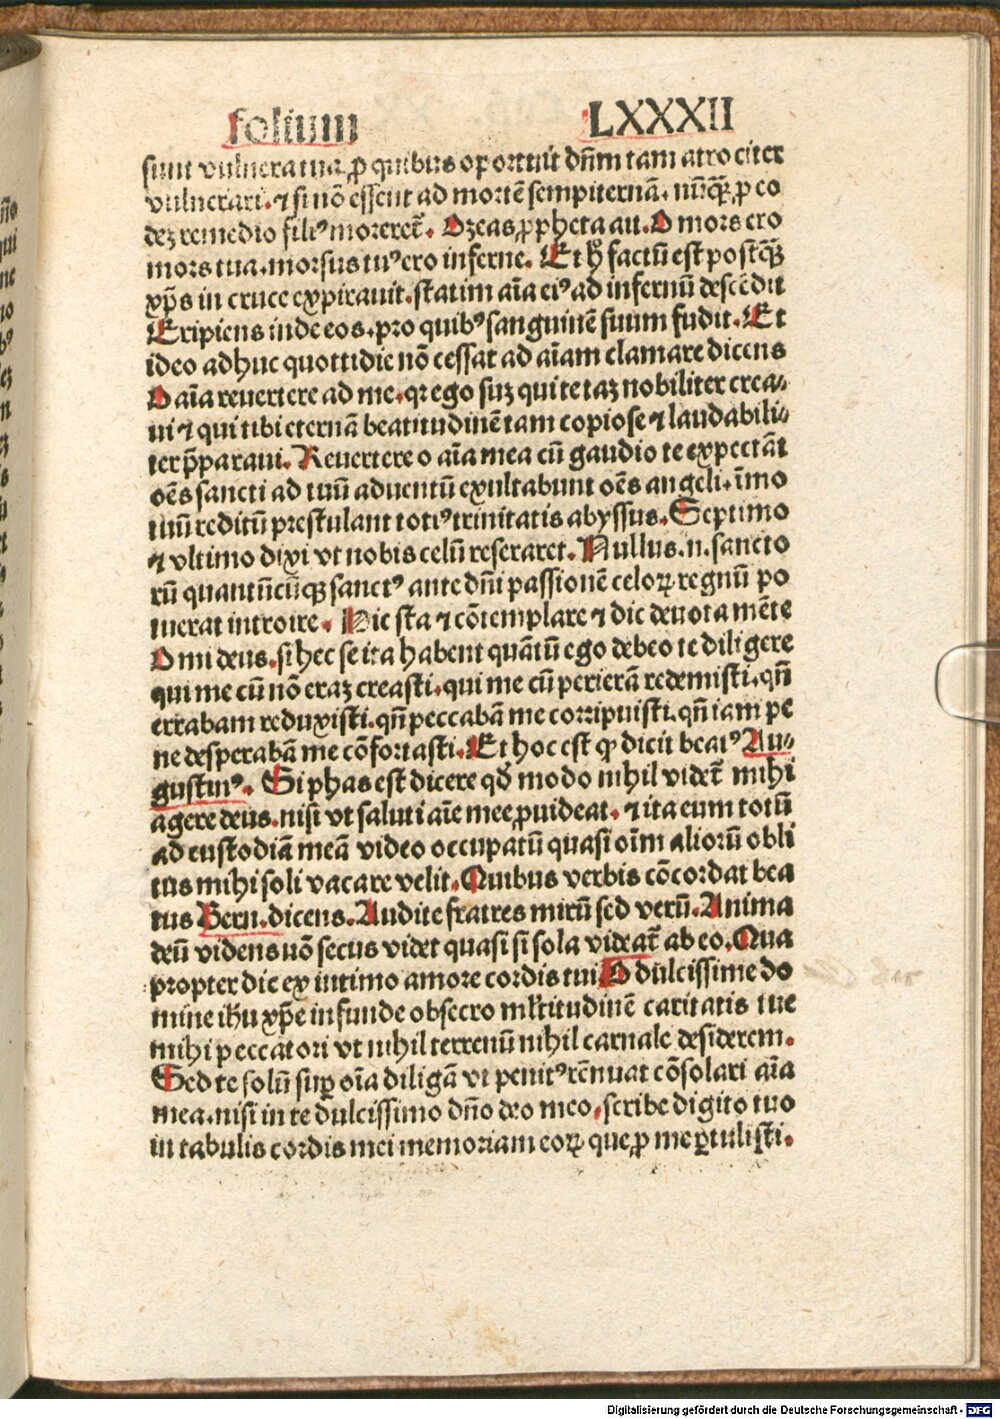 folium LXXXII
sunt vulnera tua, ꝓ quibus oportuit dn̄m tam atrociter
vulnerari. ⁊ si nō essent ad mortē sempiternā. nūqꝫ ꝓ eo
dez remedio filiꝰ morereť. Ozeas ꝓpheta au. O mors ero
mors tua. morsus tuꝰ ero inferne. Et hͦ factū est postqꝫ̄
xp̄s in cruce expirauit. statim aīa eiꝰ ad infernū descēdit
Eripiens inde eos. pro quibꝰ sanguinē suum fudit. Et
ideo adhuc quottidie nō cessat ad aīam clamare dicens
O aīa reuertere ad me. qꝛ ego suꝫ qui te taꝫ nobiliter crea⸗
ui ⁊ qui tibi eternā beatitudinē tam copiose ⁊ laudabili⸗
ter p̄paraui. Reuertere o aīa mea cū gaudio te expectāt
oēs sancti ad tuū aduentū exultabunt oēs angeli. īmo
tuū reditū prestulant totiꝰ trinitatis abyssus. Septimo
⁊ vltimo dixi vt nobis celū reseraret. Nullus .n. sancto
rū quantūcūqꝫ sanctꝰ ante dn̄i passionē celoꝝ regnū po
tuerat introire. Hic sta ⁊ cōtemplare ⁊ dic deuota mēte
O mi deus. si hec se ita habent quātū ego debeo te diligere
qui me cū nō eraꝫ creasti. qui me cū perierā redemisti. qn̄
errabam reduxisti. qn̄ peccabā me corripuisti. qn̄ iam pe
ne desperabā me cōfortasti. Et hoc est qꝙ dicit beatꝰ Au⸗
gustinꝰ. Si phas est dicere qd̄ modo nihil videť mihi
agere deus. nisi vt saluti aīe mee ꝓuideat. ⁊ ita eum totū
ad custodiā meā video occupatū quasi oīm aliorū obli
tus mihi soli vacare velit. Quibus verbis cōcordat bea
tus Bern. dicens. Audite fratres mirū sed verū. Anima
deū videns nō secus videt quasi si sola videať ab eo. Qua
propter dic ex intimo amore cordis tui O dulcissime do
mine ihū xp̄e infunde obsecro ml̄titudinē caritatis tue
mihi peccatori vt nihil terrenū nihil carnale desiderem.
Sed te solū suꝑ oīa diligā vt penitꝰ rēnuat cōsolari aīa
mea. nisi in te dulcissimo dn̄o deo meo. scribe digito tuo
in tabulis cordis mei memoriam eoꝝ que ꝓ me ꝑtulisti.
Digitalisierung gefördert durch die Deutsche Forschungsgemeinschaft - DFG